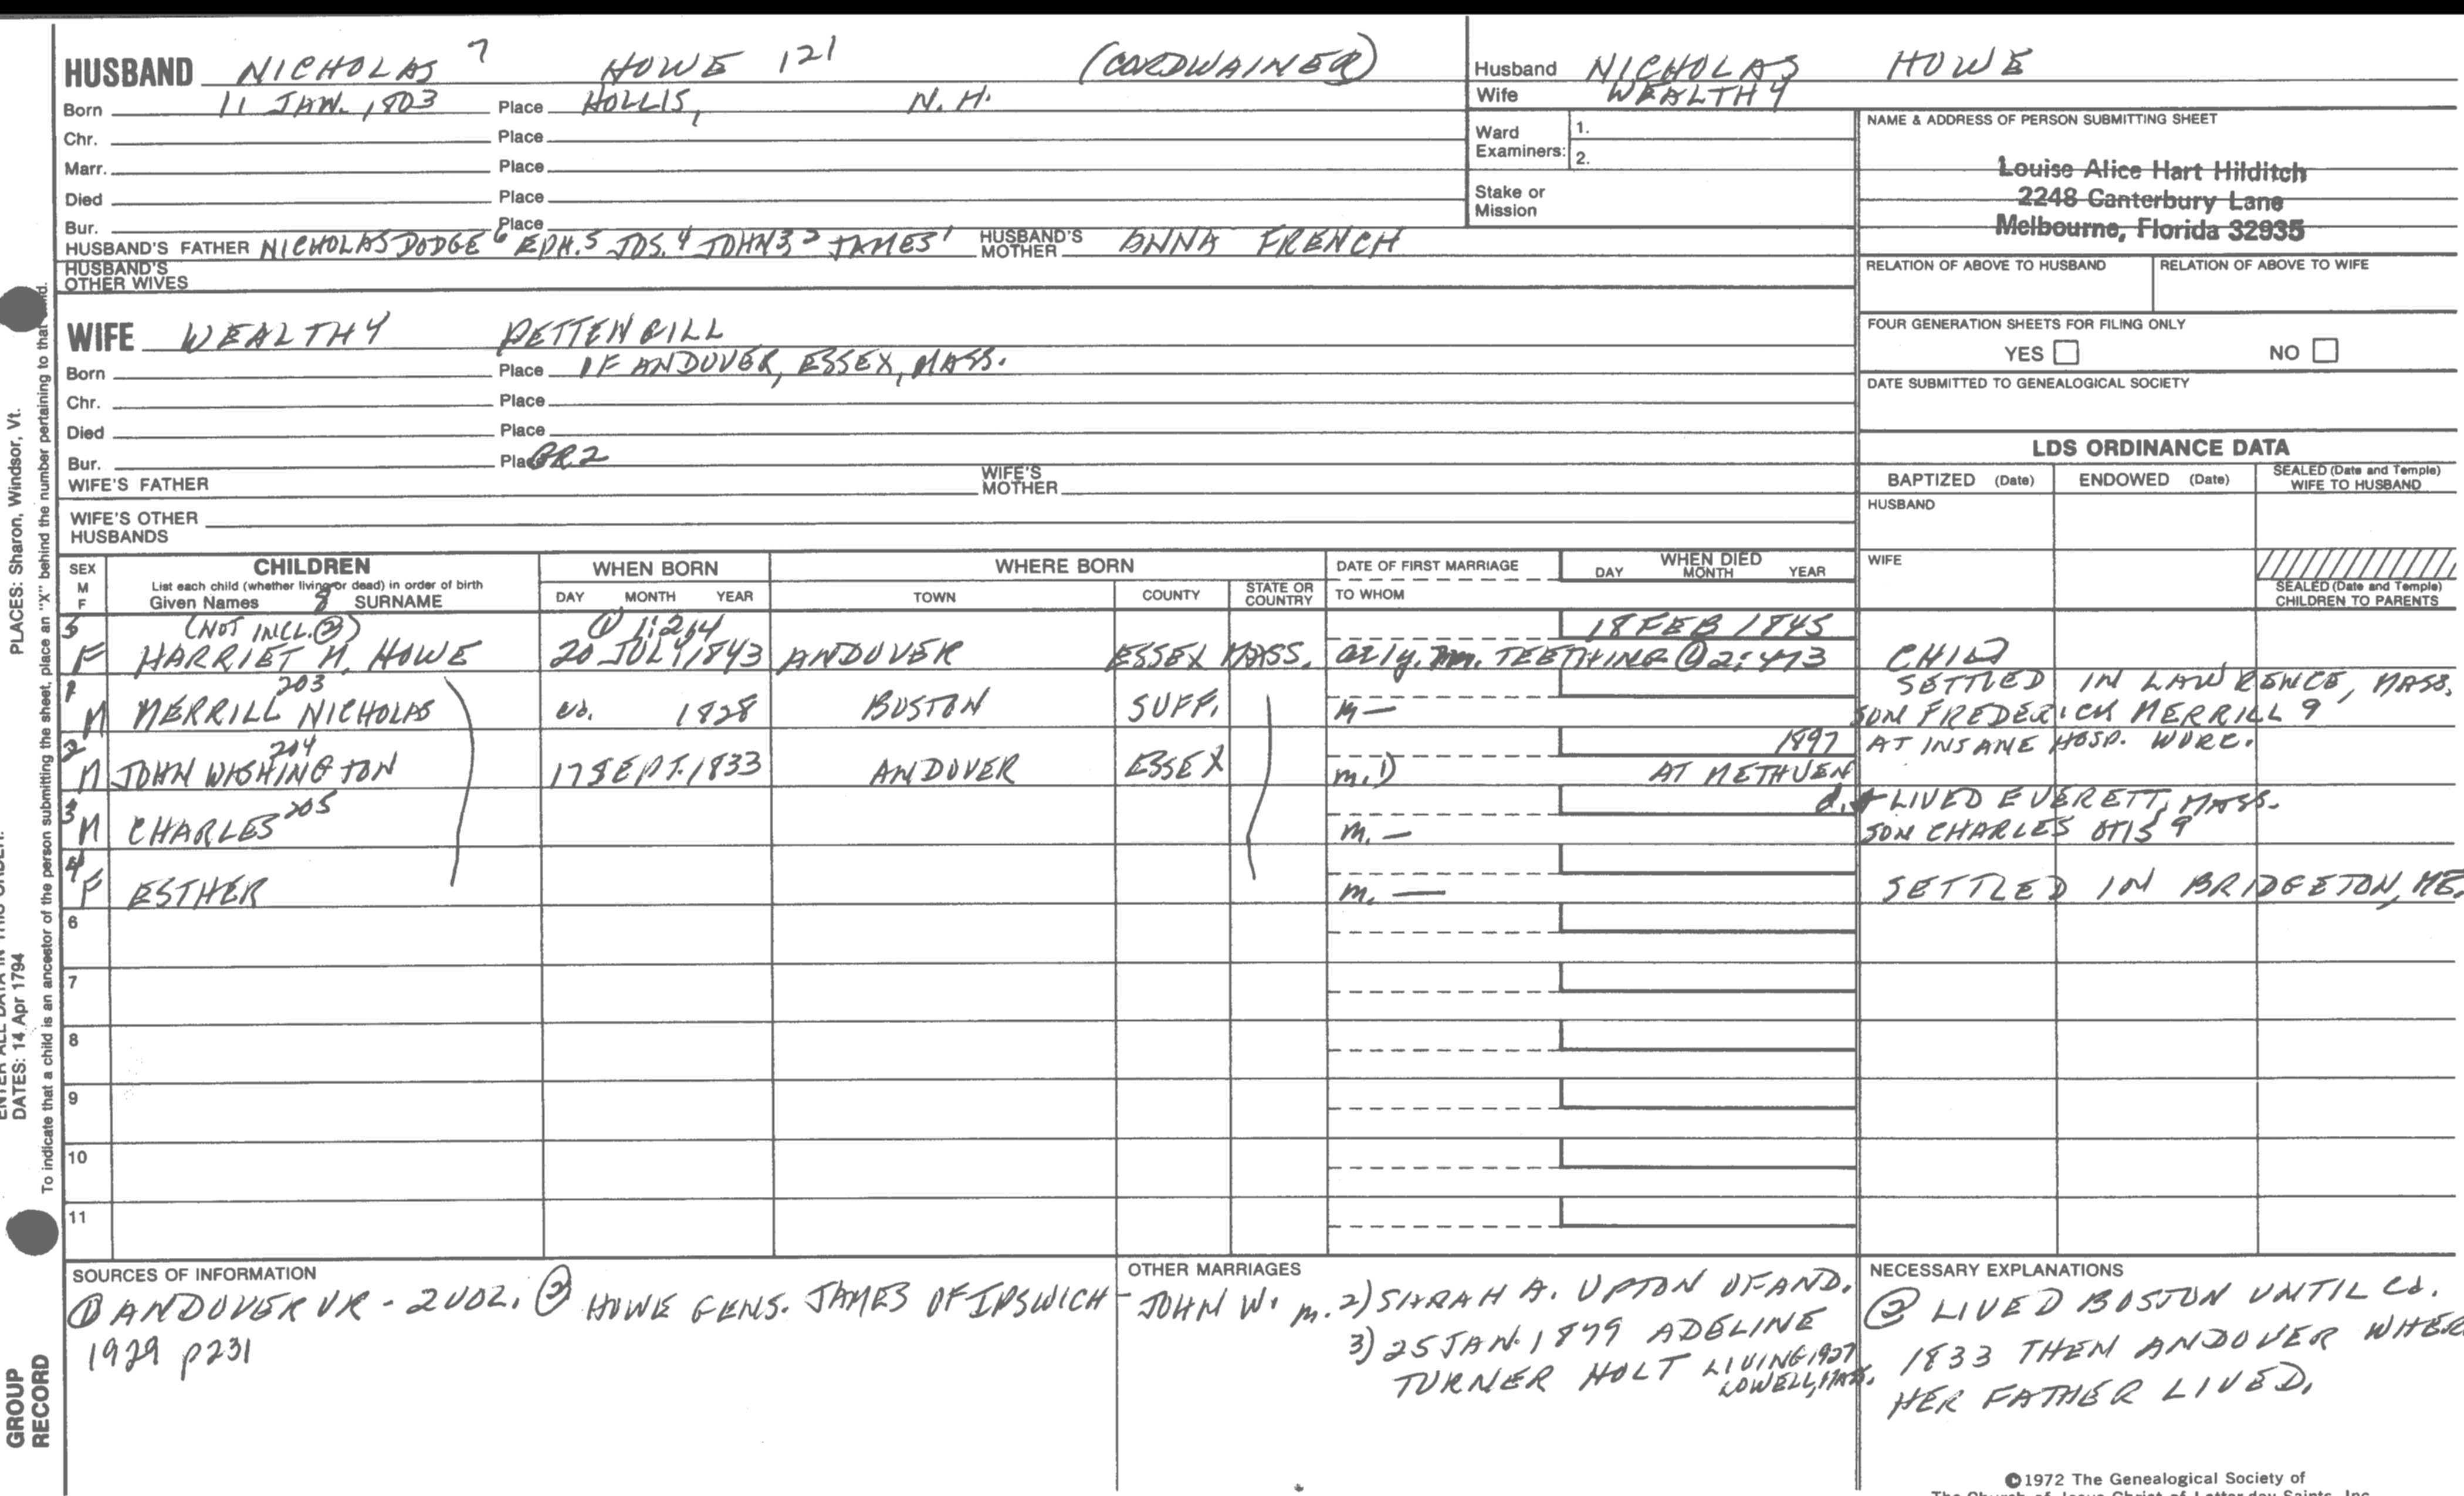 HUSBAND NICHOLAS 7 HOWE 121 (CORDWAINER)
Born 11 JAN. 1803 Place HOLLIS, N.H.
Chr. Place
Marr. Place
Died Place
Bur. Place
HUSBAND'S FATHER NICHOLAS DODGE 6 EPH.5 JOS.4 JOHN 3 2 JAMES 1 HUSBAND'S MOTHER ANNA FRENCH
HUSBAND'S OTHER WIVES
WIFE WEALTHY PETTENGILL
Born Place OF ANDOVER, ESSEX, MASS.
Chr. Place
Died Place
Bur. Place
WIFE'S FATHER WIFE'S MOTHER
WIFE'S OTHER HUSBANDS
Husband NICHOLAS HOWE
Wife WEALTHY
Ward Examiners: 1.
2.
Stake or Mission
NAME & ADDRESS OF PERSON SUBMITTING SHEET
Louise Alice Hart Hilditch
2248 Canterbury Lane
Melbourne, Florida 32935
RELATION OF ABOVE TO HUSBAND RELATION OF ABOVE TO WIFE
FOUR GENERATION SHEETS FOR FILING ONLY
YES NO
DATE SUBMITTED TO GENEALOGICAL SOCIETY
LDS ORDINANCE DATA
BAPTIZED (Date) ENDOWED (Date) SEALED (Date and Temple) WIFE TO HUSBAND
HUSBAND
WIFE
SEALED (Date and Temple) CHILDREN TO PARENTS
SEX M F CHILDREN WHEN BORN WHERE BORN DATE OF FIRST MARRIAGE WHEN DIED
List each child (whether living or dead) in order of birth
Given Names 8 SURNAME DAY MONTH YEAR TOWN COUNTY STATE OR COUNTRY TO WHOM DAY MONTH YEAR
5 (NOT INCL. ②) ① 1:214 18 FEB 1845
F HARRIET M. HOWE 20 JULY 1843 ANDOVER ESSEX MASS. TEETHING ① 2:473 CHILD
1 203 SETTLED IN LAWRENCE, MASS.
M MERRILL NICHOLAS 1828 BOSTON SUFF. m — SON FREDERICK MERRILL 9
2 204 1897 AT INSANE HOSP. WORC.
M JOHN WASHINGTON 17 SEPT. 1833 ANDOVER ESSEX m. 1) AT METHUEN
3 205 LIVED EVERETT, MASS.
M CHARLES m. — SON CHARLES OTIS 9
4
F ESTHER m. — SETTLED IN BRIDGETON, ME.
6
7
8
9
10
11
SOURCES OF INFORMATION
① ANDOVER VR - 2 VOL. ② HOWE GENS. JAMES OF IPSWICH -
1929 p231
OTHER MARRIAGES
JOHN W. m. 2) SARAH A. UPTON OF AND.
3) 25 JAN. 1879 ADELINE
TURNER HOLT LIVING 1927
LOWELL, MASS.
NECESSARY EXPLANATIONS
② LIVED BOSTON UNTIL
1833 THEN ANDOVER WHERE
HER FATHER LIVED.
©1972 The Genealogical Society of
The Church of Jesus Christ of Latter-day Saints, Inc.
PLACES: Sharon, Windsor, Vt.
To indicate that a child is an ancestor of the person submitting the sheet, place an "X" behind the number pertaining to that child.
ENTER ALL DATA IN THIS ORDER:
DATES: 14 Apr 1794
GROUP
RECORD